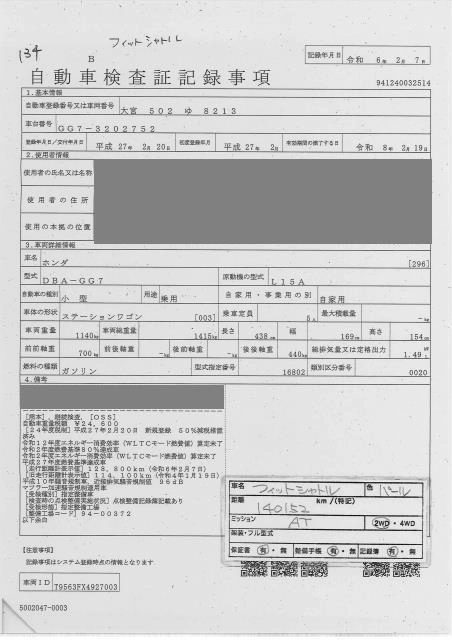 134
フィットシャトル
B
記録年月日 令和 6年 2月 7日
自動車検査証記録事項
941240032514
1.基本情報
自動車登録番号又は車両番号 大宮 502 ゆ 8213
車台番号 GG7-3202752
登録年月日/交付年月日 平成 27年 2月 20日 初度登録年月 平成 27年 2月 有効期間の満了する日 令和 8年 2月 19日
2.使用者情報
使用者の氏名又は名称
使用者の住所
使用の本拠の位置
3.車両詳細情報
車名 ホンダ [296]
型式 DBA-GG7 原動機の型式 L15A
自動車の種別 小型 用途 乗用 自家用・事業用の別 自家用
車体の形状 ステーションワゴン [003] 乗車定員 5人 最大積載量 -kg
車両重量 1140kg 車両総重量 1415kg 長さ 438cm 幅 169cm 高さ 154cm
前前軸重 700kg 前後軸重 -kg 後前軸重 -kg 後後軸重 440kg 総排気量又は定格出力 1.49
燃料の種類 ガソリン 型式指定番号 16802 類別区分番号 0020
4.備考
[熊本],継続検査,[OSS]
自動車重量税額 ¥24,600
[24年度税制]平成27年2月20日 新規登録 50%減税措置
済み
令和12年度エネルギー消費効率(WLTCモード燃費値)算定未了
令和2年度燃費基準80%達成車
令和2年度エネルギー消費効率(WLTCモード燃費値)算定未了
平成27年度燃費基準達成車
[走行距離計表示値]128,800km(令和6年2月7日)
[旧走行距離計表示値]114,100km(令和4年1月19日)
平成10年騒音規制車、近接排気騒音規制値 96dB
マフラー加速騒音規制適用車
[受検種別]指定整備車
[検査時の点検整備実施状況]点検整備記録簿記載あり
[受検形態]指定整備工場
[整備工場コード]94-00372
以下余白
車名 フィットシャトル 色 パール
距離 140152 km/(特記)
ミッション AT 2WD・4WD
架装・フル型式
保証書 有・無 整備手帳 有・無 記録簿 有・無
【注意事項】
記録事項はシステム登録時点の情報となります
車両ID T9563FX4927003
5002047-0003